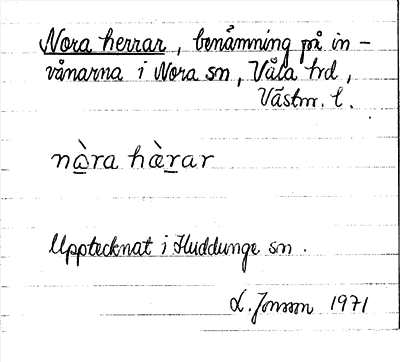 Nora herrar, benämning på in-
vånarna i Nora sn, Våla hd,
Västm. l.
nà̲ra hàr̲ar
Upptecknat i Huddunge sn.
L. Jonsson 1971